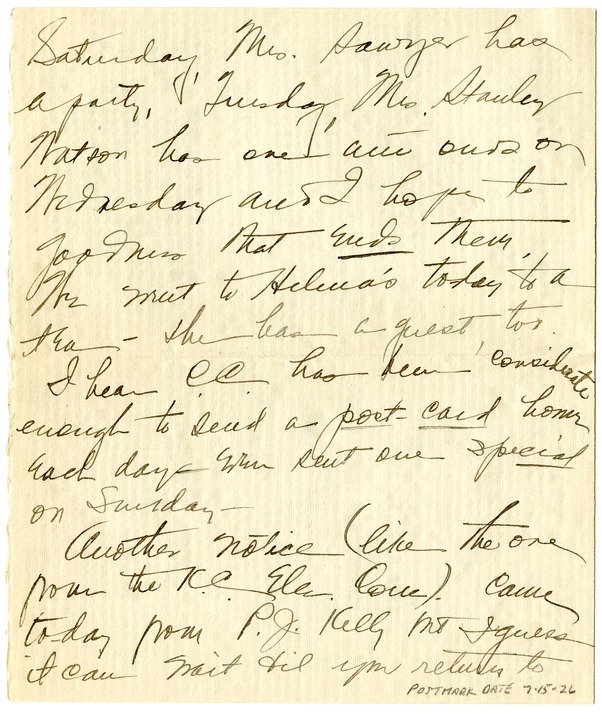 Saturday, Mrs. Sawyer has
a party, Tuesday, Mrs. Stanley
Watson has one and ours on
Wednesday and I hope to
goodness that ends them.
We went to Helena's today to a
tea - she has a guest, too.
I hear C.C. has been considerate
enough to send a post-card home
each day - even sent one special
on Sunday -
Another notice (like the one
from the K.C. Elec. Com). came
today from P.J. Kelly but I guess
it can wait til you return to
POSTMARK DATE 7-15-26